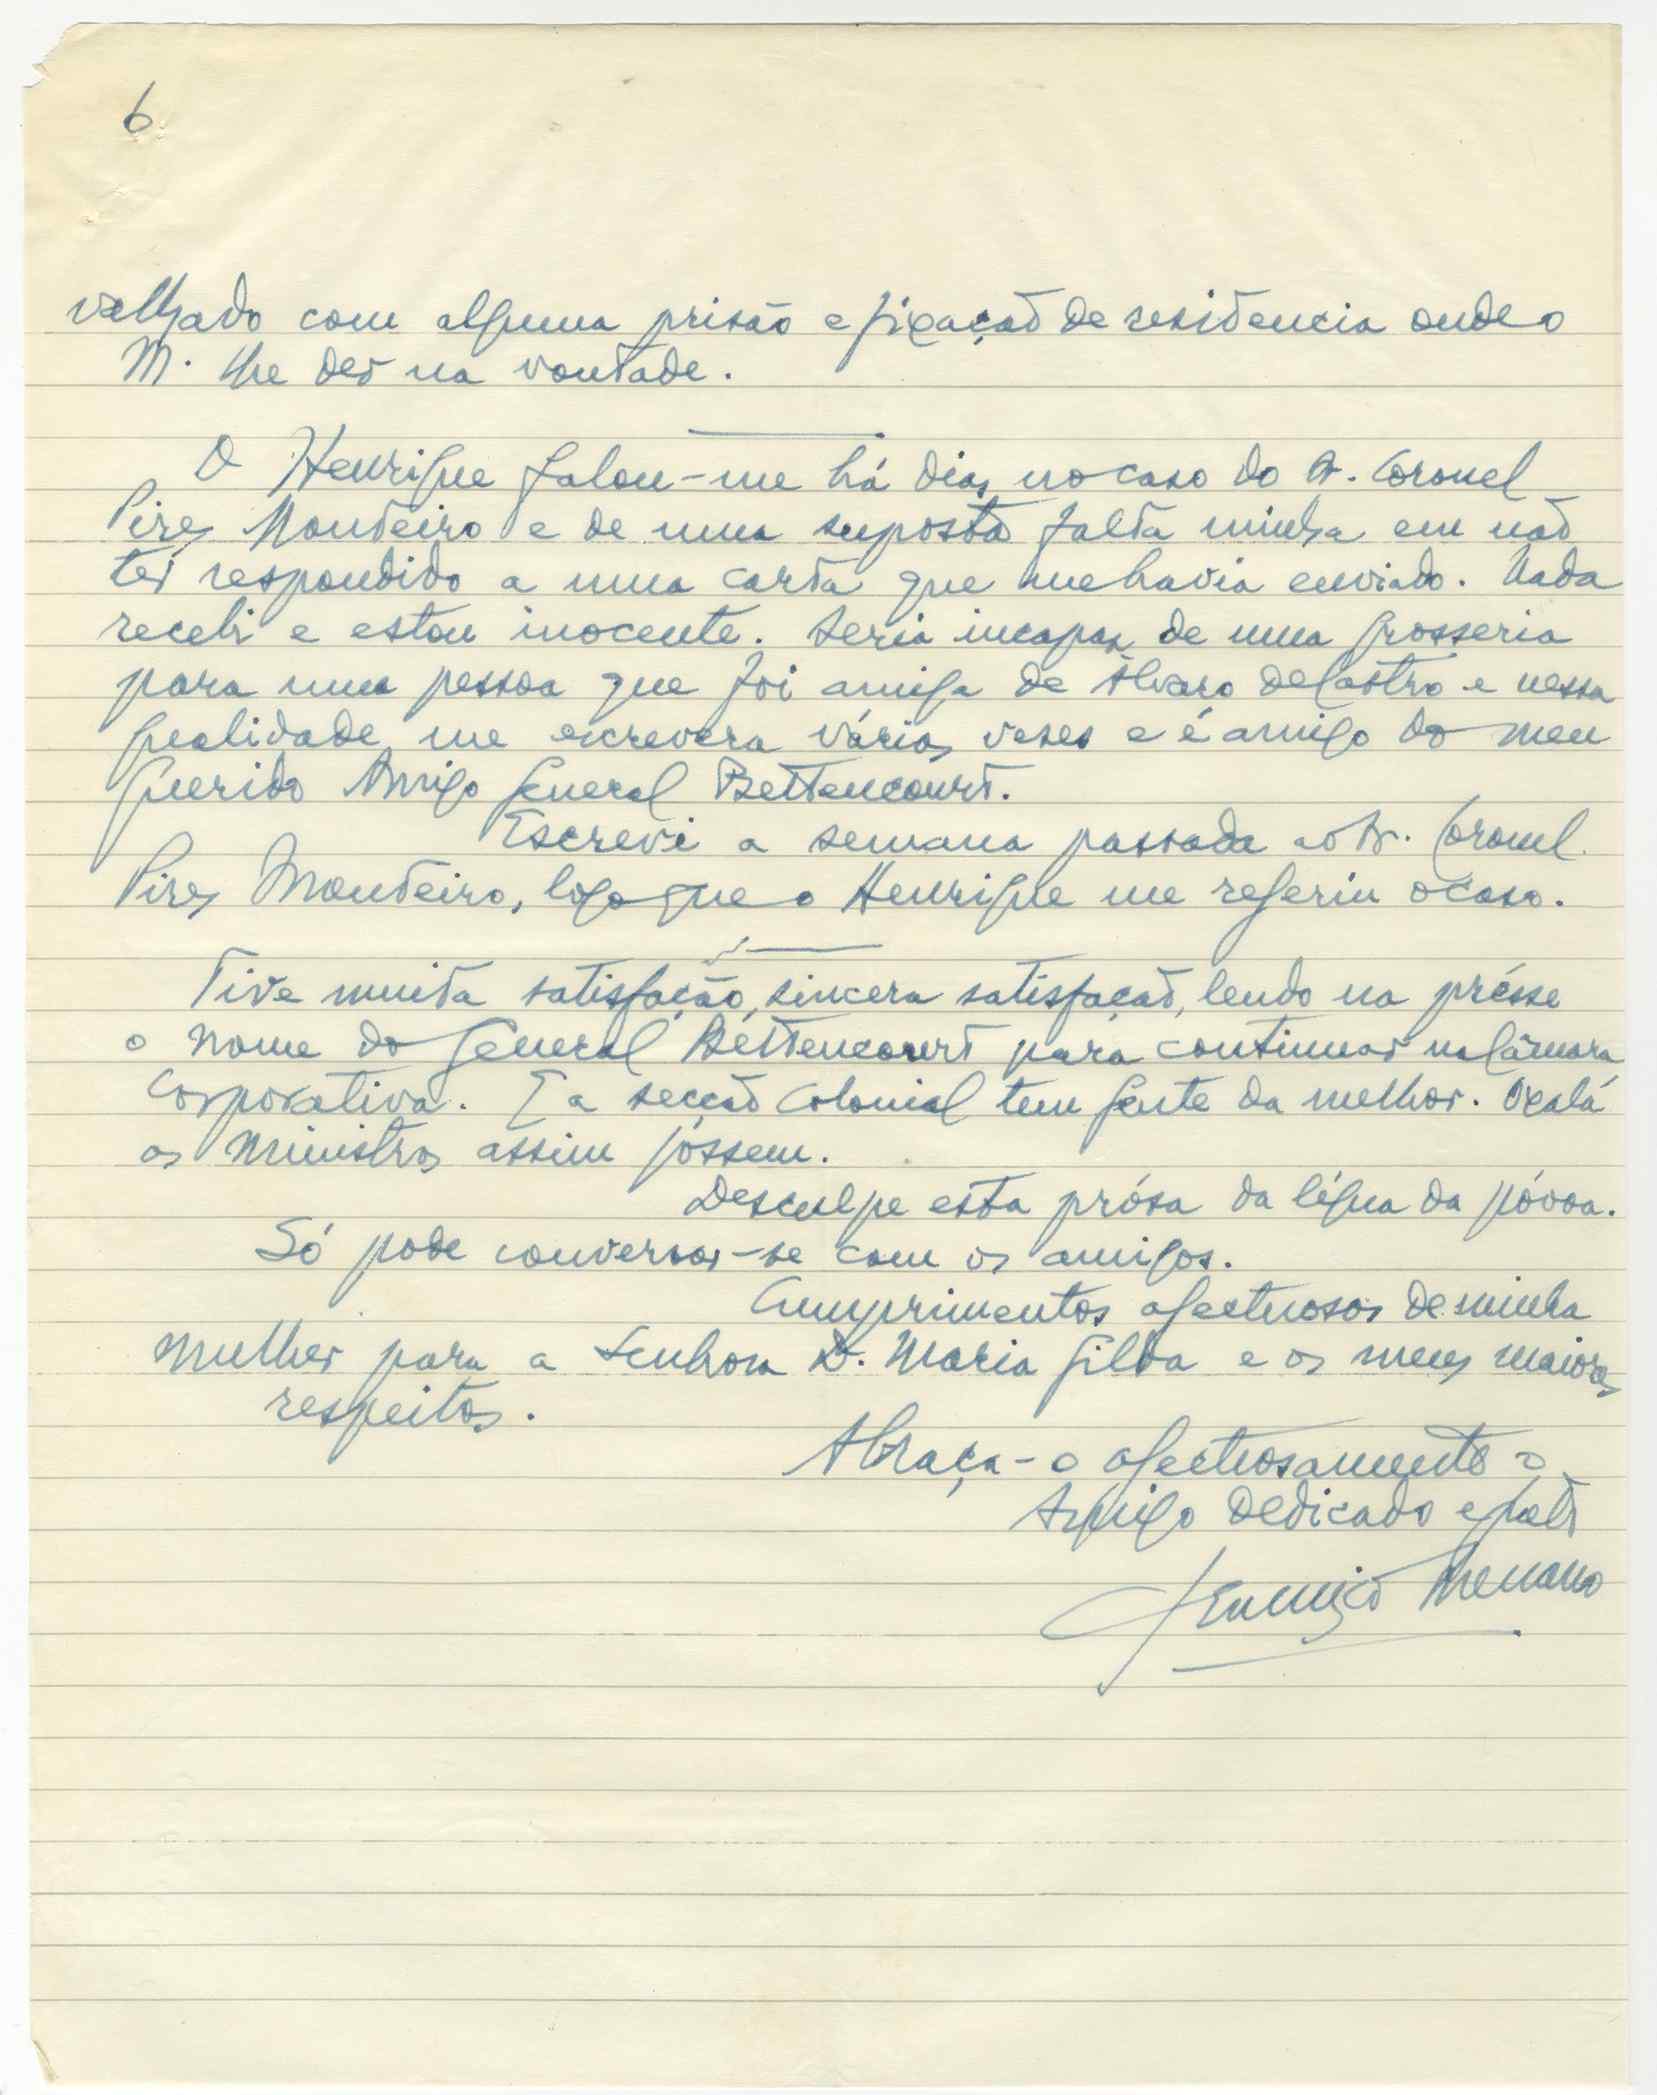 6
valhado com alguma prisão e fixação de residencia onde o
M. lhe der na vontade.
O Henrique falou-me há dias no caso do Sr. Coronel
Pires Monteiro e de uma suposta falta minha em não
ter respondido a uma carta que me havia enviado. Nada
recebi e estou inocente. Seria incapaz de uma grosseria
para uma pessoa que foi amiga de Álvaro de Castro e nessa
qualidade me escrevera várias veses e é amigo do meu
querido Amigo General Bettencourt.
Escrevi a semana passada ao Sr. Coronel
Pires Monteiro, logo que o Henrique me referiu o caso.
Tive muita satisfação, sincera satisfação, lendo na présse
o nome do General Bettencourt para continuar na Câmara
Corporativa. E a secção Colonial tem gente da melhor. Oxalá
os ministros assim fôssem.
Desculpe esta prósa da légua da póvoa.
Só pode conversar-se com os amigos.
Cumprimentos afectuosos de minha
mulher para a Senhora D. Maria Gilda e os meus maiores
respeitos.
Abraça-o afectuosamente o
Amigo dedicado e grato
Menano